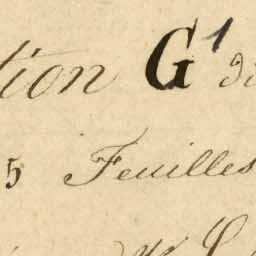 tion G¹
5 Feuilles